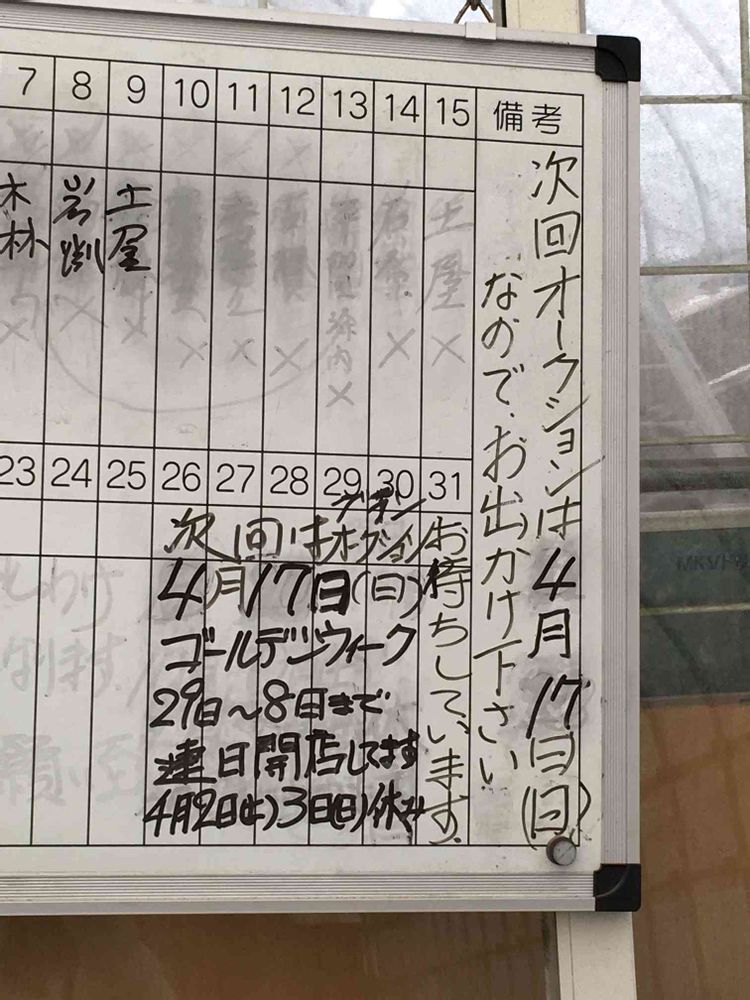 7 8 9 10 11 12 13 14 15 備考
岩渕
土屋
土屋
×
×
×
×
×
×
×
×
次回オークションは4月17日(日)
なので、お出かけ下さい
23 24 25 26 27 28 29 30 31
次回はオープンオークション
4月17日(日)
ゴールデンウィーク
29日〜8日まで
連日開店してます
4月2日(土)3日(日)休み
お待ちしています。